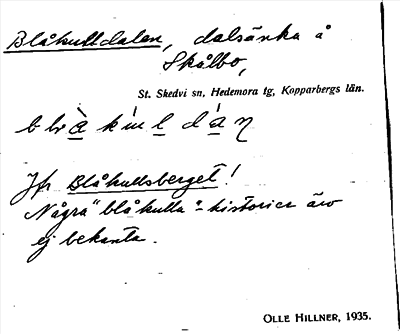 Blåkulldalen, dalsänka å
Skålbo,
St. Skedvi sn, Hedemora tg, Kopparbergs län.
Jfr Blåkullsberget!
Några "blåkulla"-historier äro
ej bekanta.
OLLE HILLNER, 1935.